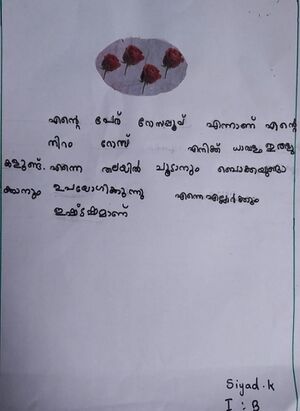 എന്റെ പേര് റോസപ്പൂവ് എന്നാണ് എന്റെ
നിറം റോസ് എനിക്ക് ധാരാളം ഇതളു
കളുണ്ട്. എന്നെ തലയിൽ ചൂടാനും ബൊക്കയുണ്ടാ
ക്കാനും ഉപയോഗിക്കുന്നു എന്നെ എല്ലാർക്കും
ഇഷ്ടമാണ്
Siyad.K
I : B